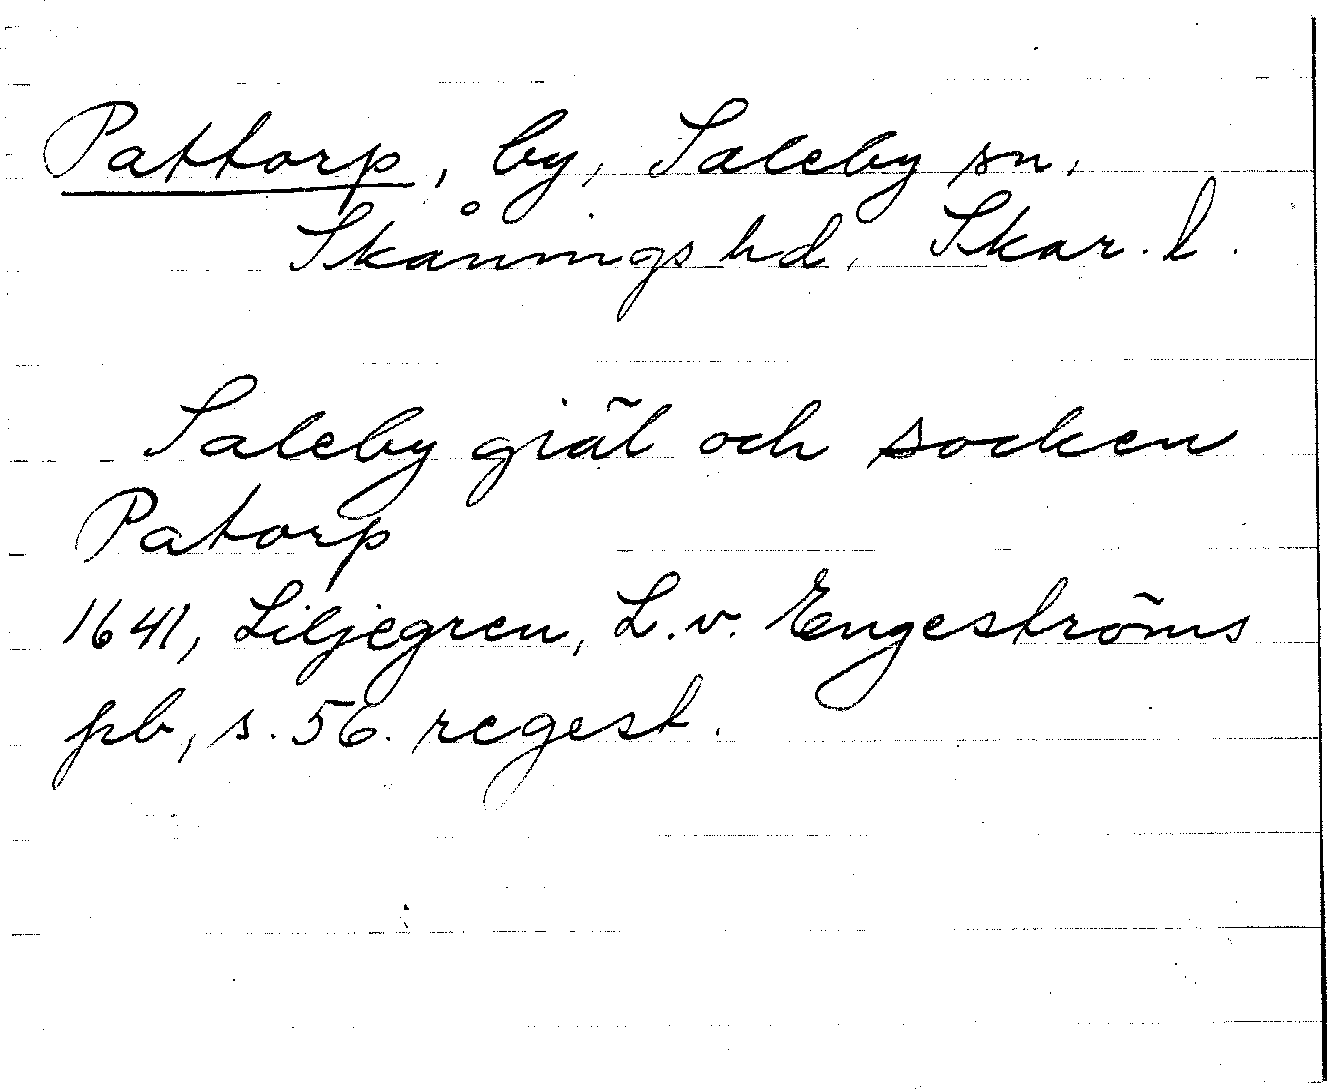 Pattorp, by, Saleby sn,
Skånings hd, Skar. l.
Saleby giäl och socken
Patorp
1641, Liljegren, L. v. Engeströms
pb, s. 56. regest.